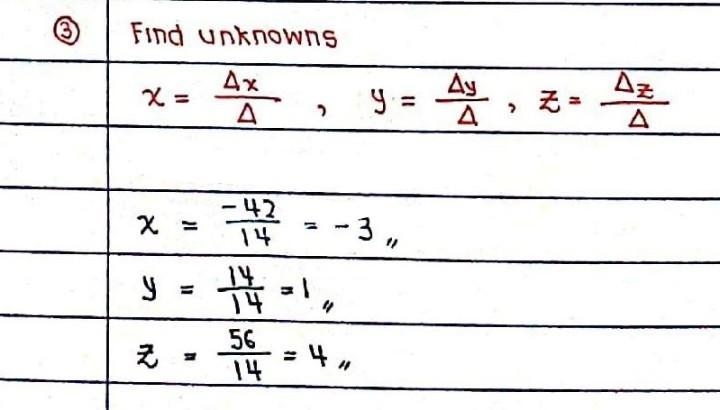 ③ Find unknowns
x = Δx/Δ , y = Δy/Δ , z = Δz/Δ
x = -42/14 = -3 〃
y = 14/14 = 1 〃
z = 56/14 = 4 〃